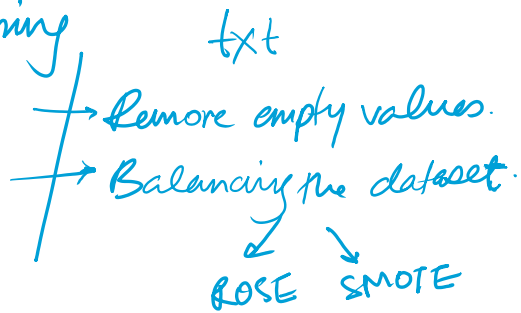 txt
Remove empty values.
Balancing the dataset.
ROSE SMOTE